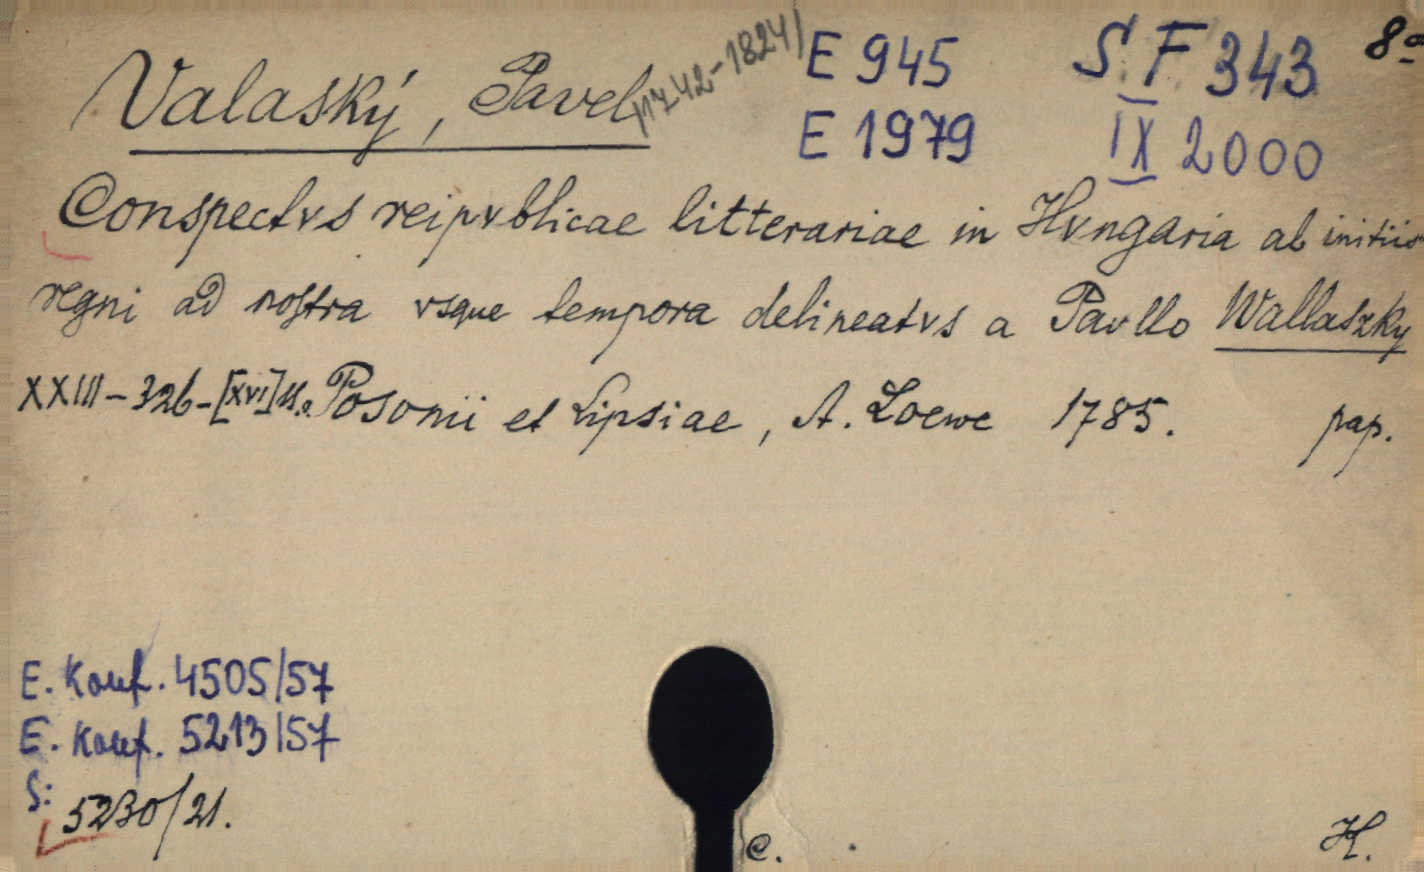 Valaský, Pavel /1742-1824/
E 945
S F 343
8°
E 1979
IX 2000
Conspectvs reipvblicae litterariae in Hvngaria ab initiis
regni ad nostra vsque tempora delineatvs a Pavllo Wallaszky
XXIII-326-[XVI]ss. Posonii et Lipsiae, A. Loewe 1785. pap.
E. Konf. 4505/57
E. Konf. 5213/57
S: 5230/21.
C.
H.